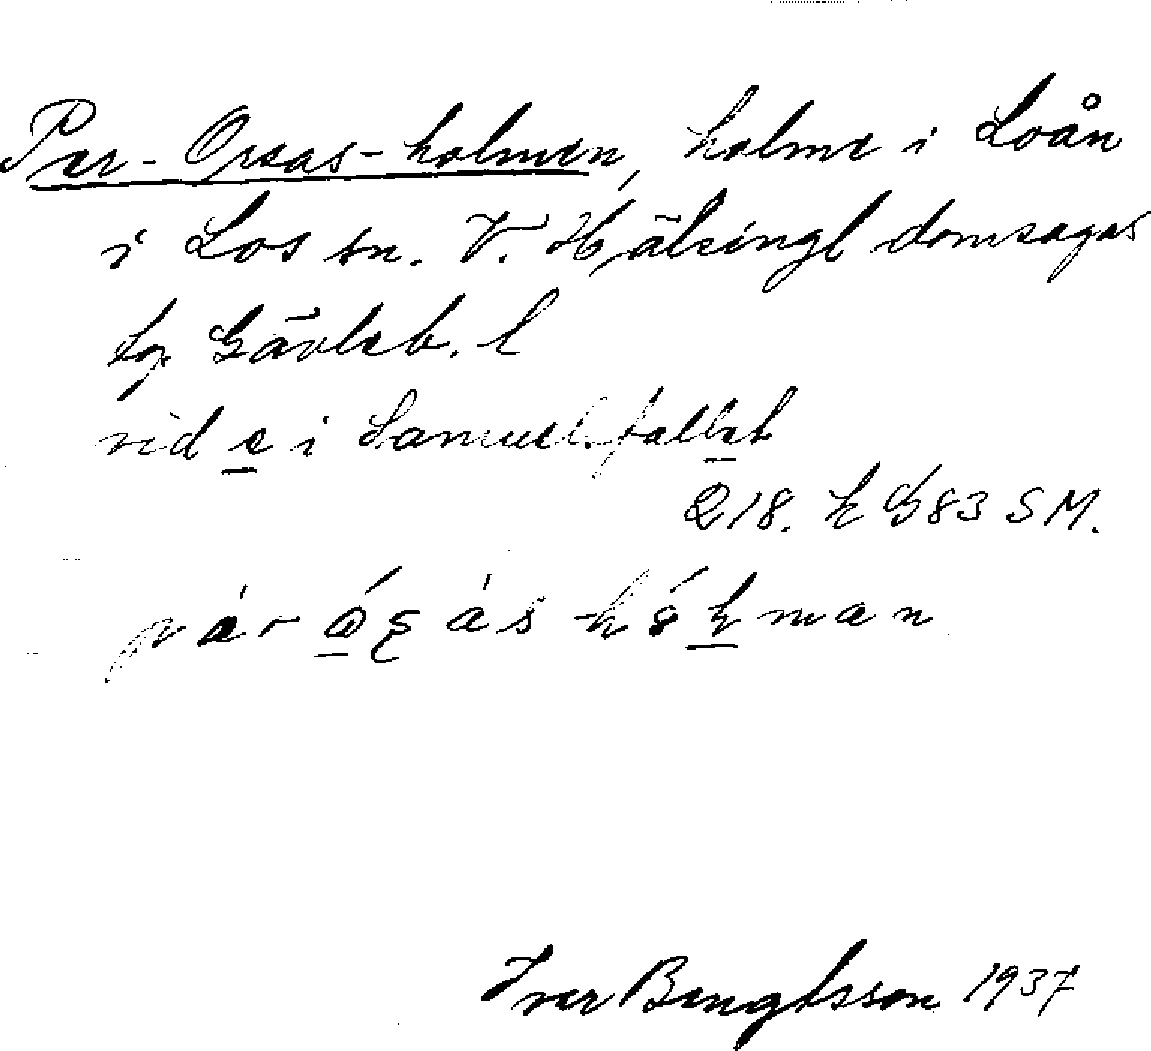 Per-Orsas-holmen, holme i Loån
i Los sn. V. Hälsingl domsagas
tg Gävleb. l
vid e i Samuelsfallet
218. k G83 SM.
Iver Bengtsson 1937